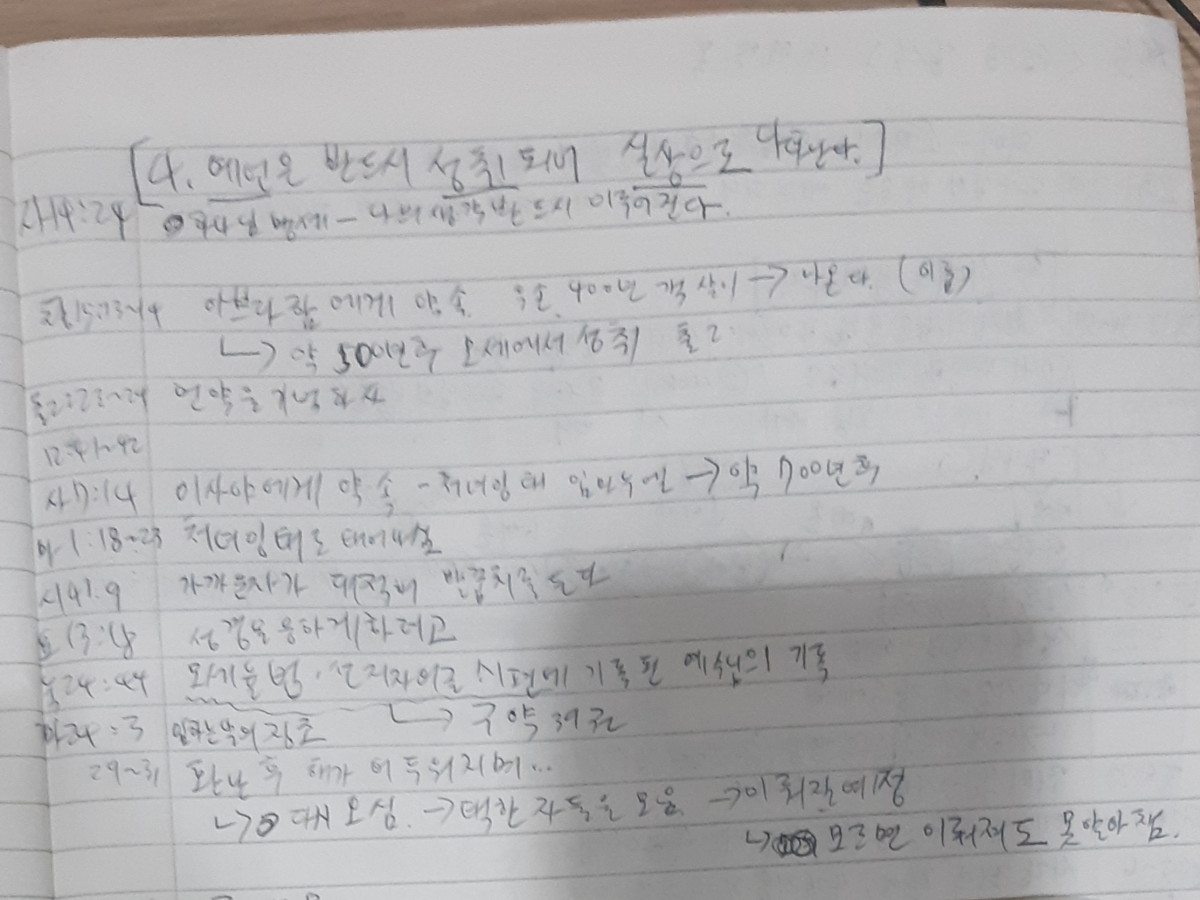 [다. 예언은 반드시 성취되어 실상으로 나타난다.]
사14:24 하나님 맹세 - 나의 생각 반드시 이루어진다.
창15:13~14 아브라함에게 약속. 400년 객살이 → 나온다. (이룸)
↳ 약 500년후 모세에서 성취 출2:
출2:23~24 언약을 기억하사
12:41~42
사7:14 이사야에게 약속 - 처녀잉태 임마누엘 → 약 700년 후
마1:18~23 처녀잉태로 태어나심
시41:9 가까운자가 대적하여 발꿈치를 든다
요13:18 성경을 응하게 하려고
눅24:44 모세율법. 선지자의글 시편에 기록된 예수님의 기록
마24:3 임하는 때의 징조 ↳ 구약 39권
29~31 환난 후 해가 어두워지며...
↳ 때 오심. → 택한 자들을 모음 → 이뤄질 예정
↳ 모르면 이뤄져도 못알아챔.